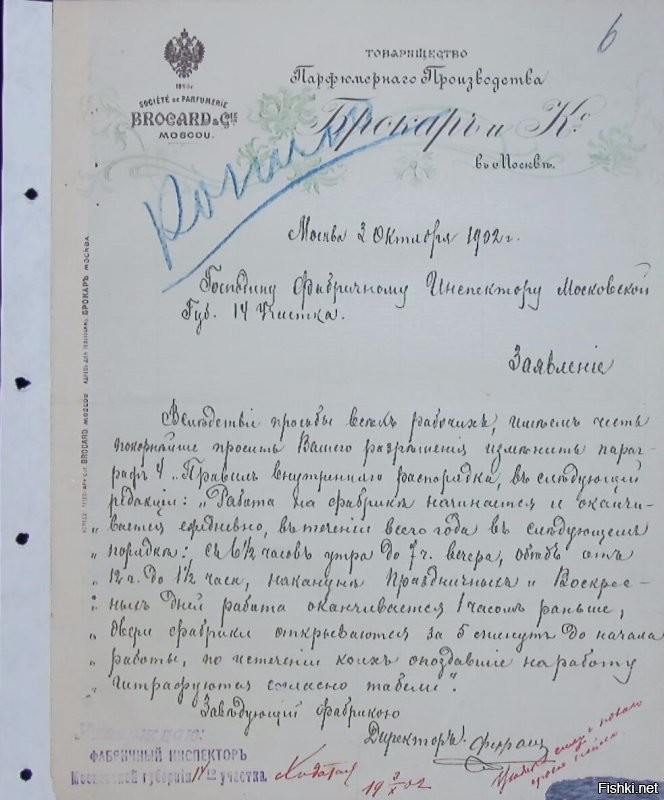 6
ТОВАРИЩЕСТВО
Парфюмернаго Производства
Брокаръ и Ко
въ Москвѣ.
SOCIÉTÉ DE PARFUMERIE
BROCARD & Cie
MOSCOU.
Москва 3 Октября 1902 г.
Господину Фабричному Инспектору Московской
Губ. 14 Участка.
Заявленіе
Вслѣдствіе просьбы всѣхъ рабочихъ, имѣемъ честь
покорнѣйше просить Вашего разрѣшенія измѣнить пара-
графъ 4 „Правилъ внутренняго распорядка, въ слѣдующей
редакціи: „Работа на фабрикѣ начинается и оканчи-
„ вается ежедневно, въ теченіи всего года въ слѣдующемъ
„ порядкѣ: съ 6½ часовъ утра до 7 ч. вечера, обѣдъ отъ
„ 12 ч. до 1½ час., наканунѣ Праздничныхъ и Воскрес-
„ ныхъ дней работа оканчивается 1 часомъ раньше,
„ двери фабрики открываются за 5 минутъ до начала
„ работы, по истеченіи коихъ опоздавшіе на работу
„ штрафуются согласно табели“.
Завѣдующій фабрикою
Директоръ: Ферранъ
Утверждаю:
ФАБРИЧНЫЙ ИНСПЕКТОРЪ
Московской губерніи 14го участка.
19 02
Fishki.net